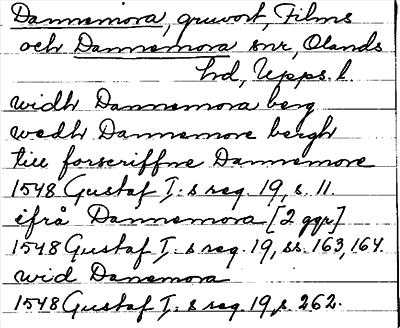 Dannemora, gruvort, Films
och Dannemora snr, Olands
hd, Upps. l.
widh Dannemora berg
wedh Dannemore bergh
till forscriffne Dannemore
1548 Gustaf I:s reg. 19, s. 11.
ifrå Dannemora [2 ggr]
1548 Gustaf I:s reg. 19, ss. 163, 164.
wid Danemora
1548 Gustaf I:s reg. 19, s. 262.